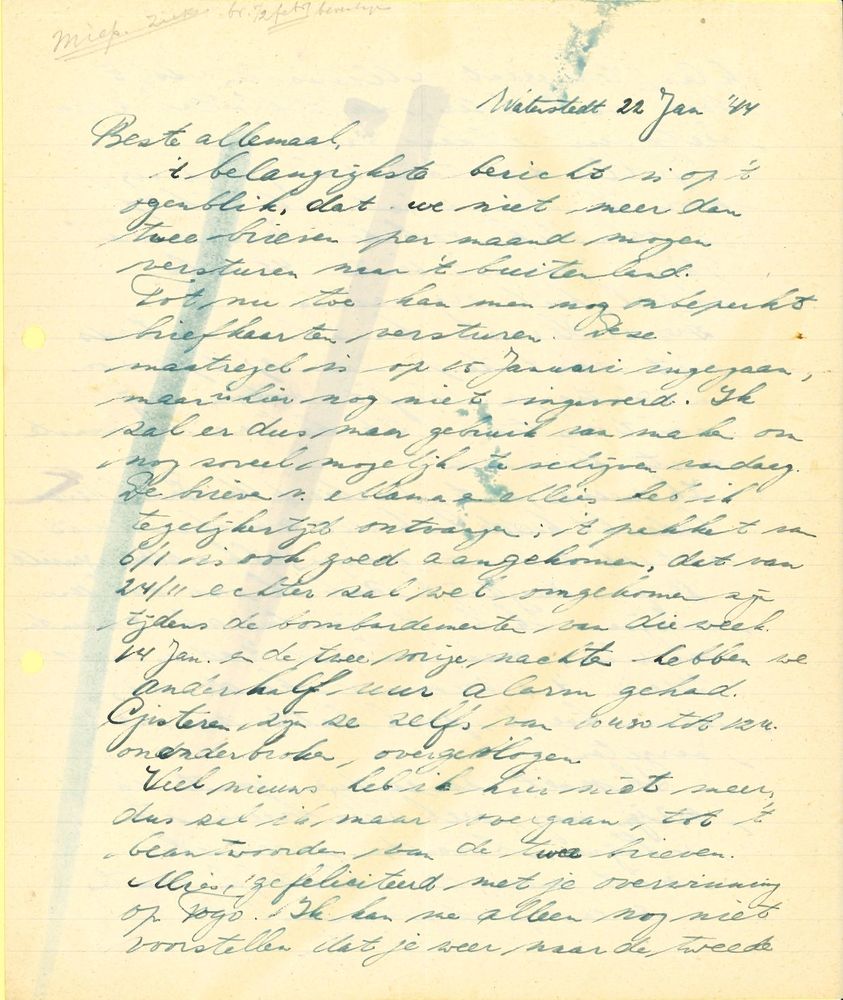 Miep
Waterstedt 22 Jan '44
Beste allemaal,
't belangrijkste bericht is op 't
ogenblik, dat we niet meer dan
twee brieven per maand mogen
versturen naar 't buitenland.
Tot nu toe kan men nog onbeperkt
briefkaarten versturen. Deze
maatregel is op 15 Januari ingegaan,
maar hier nog niet ingevoerd. Ik
zal er dus maar gebruik van maken om
nog zoveel mogelijk te schrijven vandaag.
De brieven v. Mama en Mies heb ik
tegelijkertijd ontvangen; 't pakket van
6/1 is ook goed aangekomen, dat van
24/11 echter zal wel omgekomen zijn
tijdens de bombardementen van die week.
14 Jan. en de twee vorige nachten hebben we
anderhalf uur alarm gehad.
Gisteren zijn ze zelfs van 10u30 tot 12u.
ononderbroken overgevlogen.
Veel nieuws heb ik hier niet meer,
dus zal ik maar overgaan tot 't
beantwoorden van de twee brieven.
Mies, gefeliciteerd met je overwinning
op Togo. Ik kan me alleen nog niet
voorstellen dat je weer naar de tweede